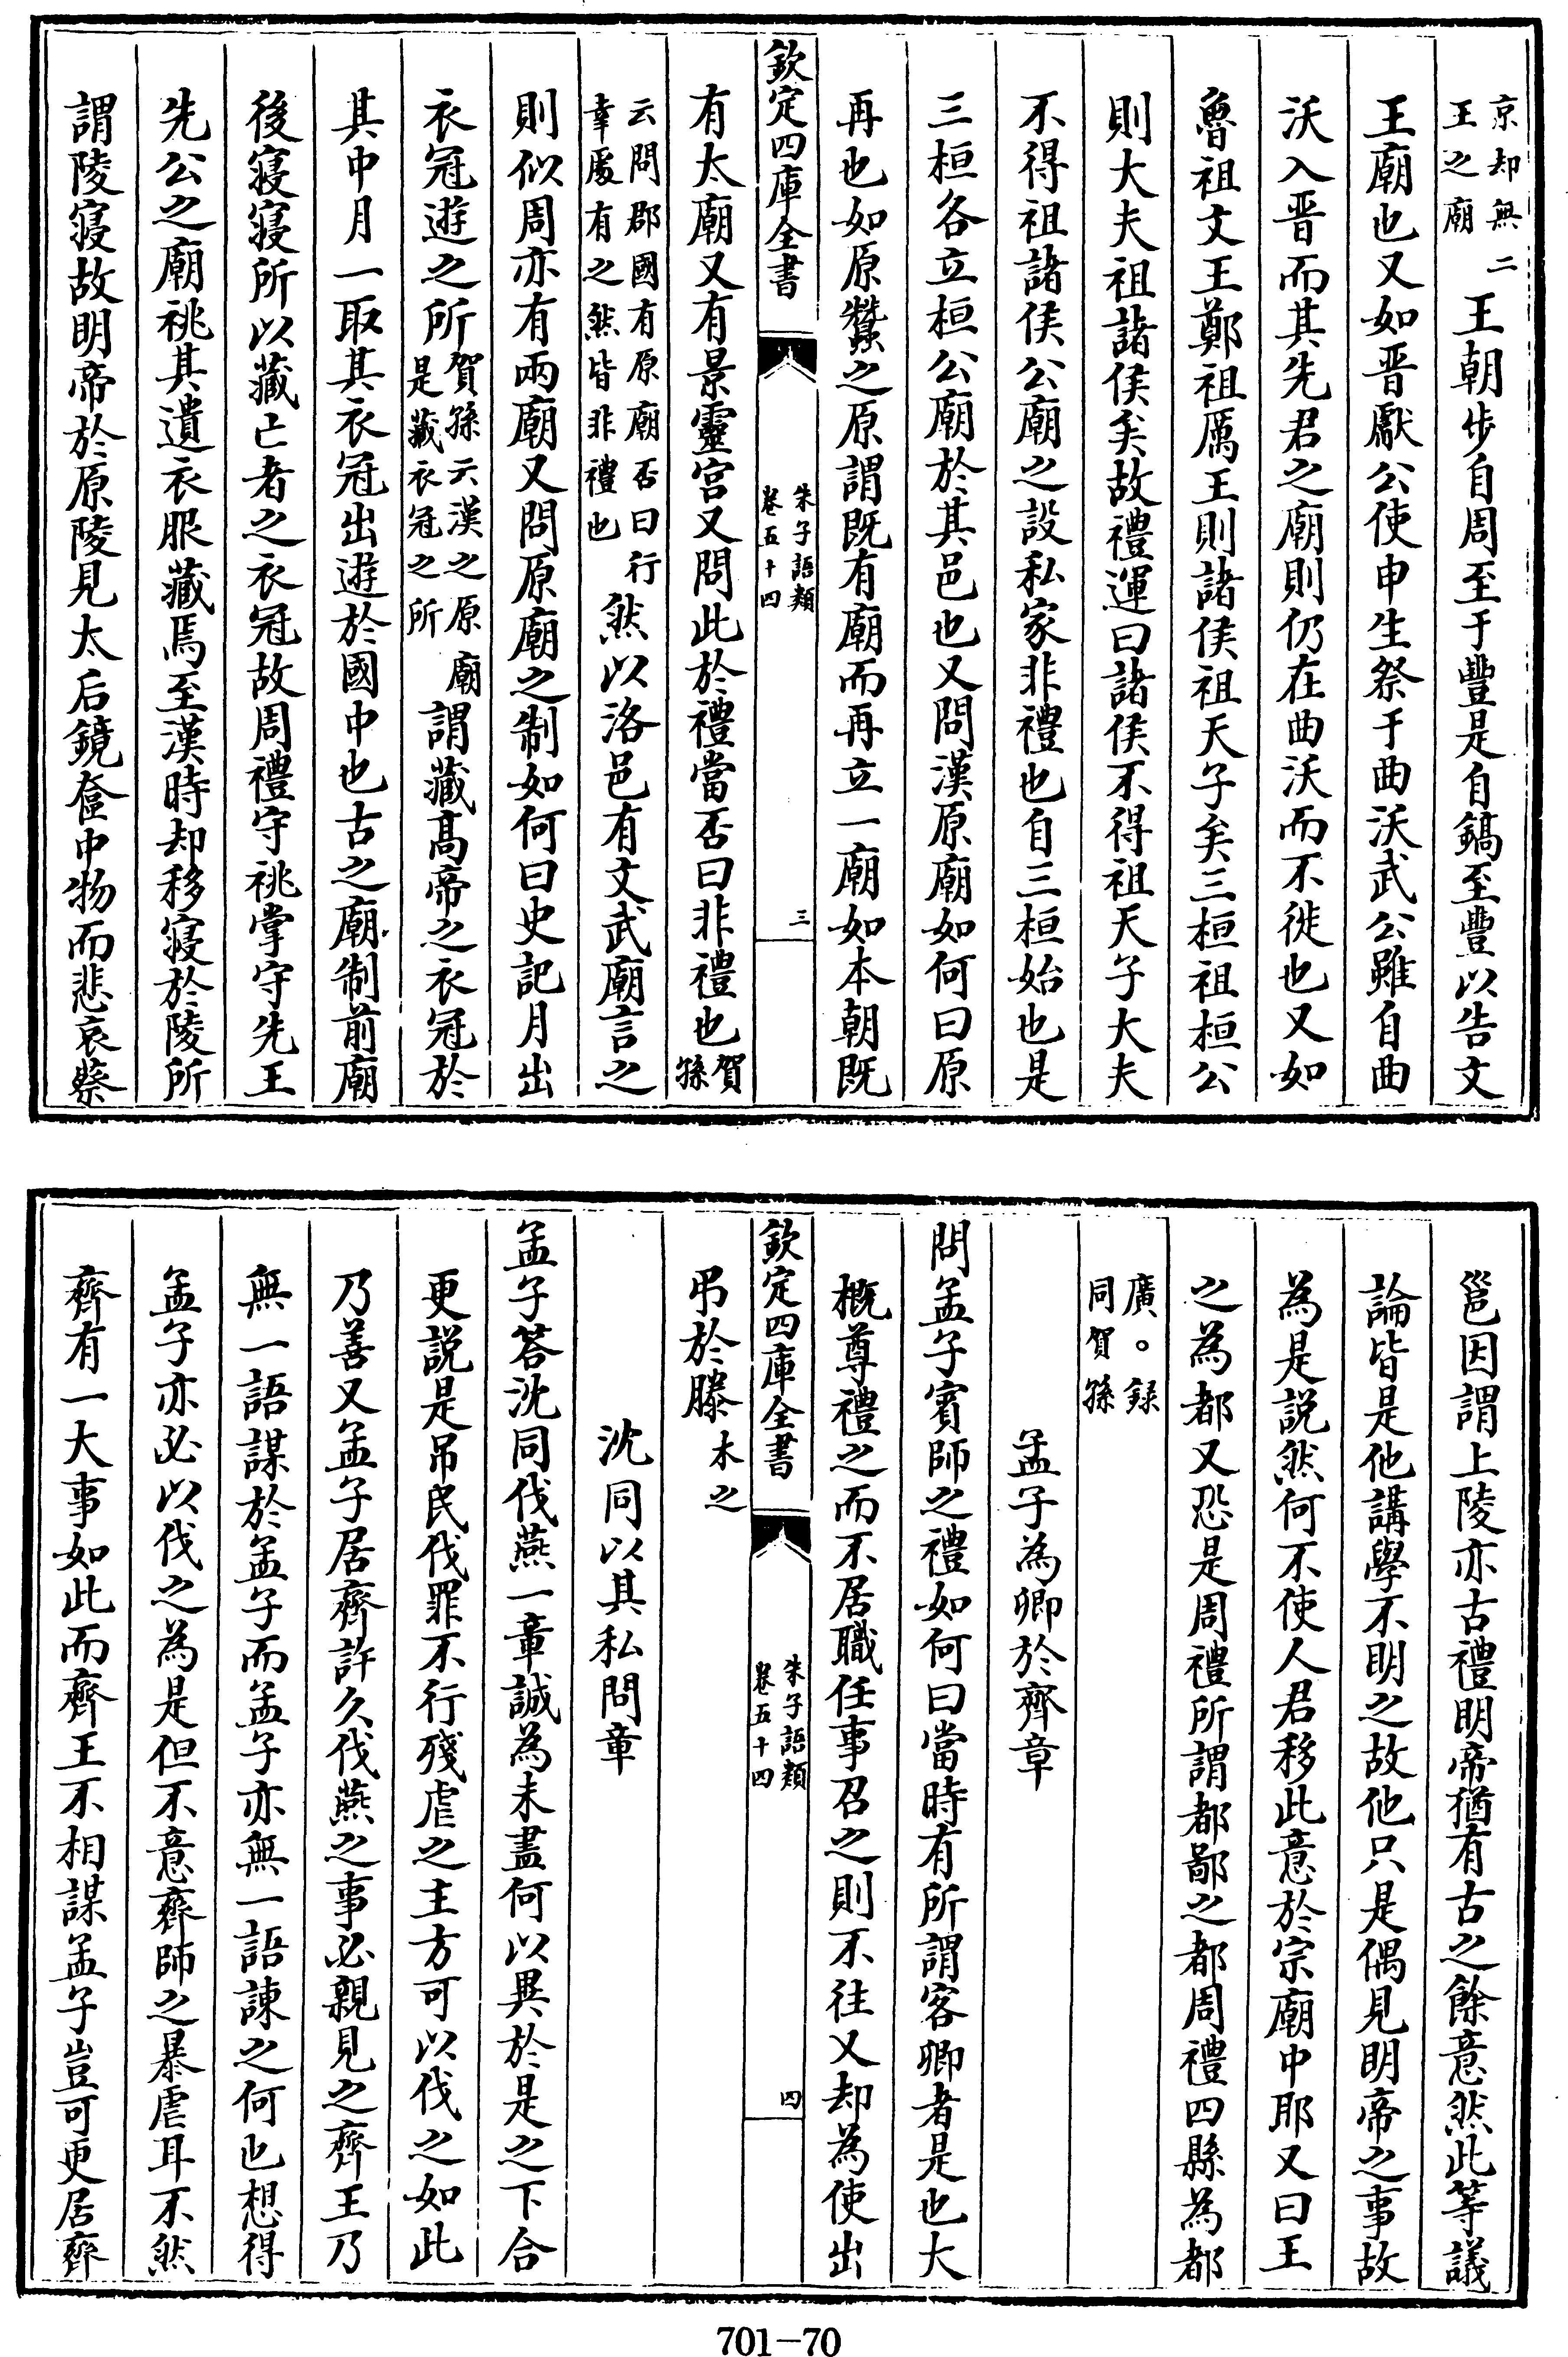 京却無二
王之廟
王朝步自周至于豐是自鎬至豐以告文
王廟也又如晋獻公使申生祭于曲沃武公雖自曲
沃入晋而其先君之廟則仍在曲沃而不徙也又如
魯祖文王鄭祖厲王則諸侯祖天子矣三桓祖桓公
則大夫祖諸侯矣故禮運曰諸侯不得祖天子大夫
不得祖諸侯公廟之設私家非禮也自三桓始也是
三桓各立桓公廟於其邑也又問漢原廟如何曰原
再也如原蠶之原謂既有廟而再立一廟如本朝既
欽定四庫全書
朱子語類
卷五十四
三
有太廟又有景靈宮又問此於禮當否曰非禮也賀
孫
云問郡國有原廟否曰行
幸處有之然皆非禮也
然以洛邑有文武廟言之
則似周亦有兩廟又問原廟之制如何曰史記月出
衣冠遊之所
賀孫云漢之原廟
是藏衣冠之所
謂藏高帝之衣冠於
其中月一取其衣冠出遊於國中也古之廟制前廟
後寢寢所以藏亡者之衣冠故周禮守祧掌守先王
先公之廟祧其遺衣服藏焉至漢時却移寢於陵所
謂陵寢故明帝於原陵見太后鏡奩中物而悲哀蔡
邕因謂上陵亦古禮明帝猶有古之餘意然此等議
論皆是他講學不明之故他只是偶見明帝之事故
為是說然何不使人君移此意於宗廟中耶又曰王
之為都又恐是周禮所謂都鄙之都周禮四縣為都
廣。録
同賀孫
孟子為卿於齊章
問孟子賓師之禮如何曰當時有所謂客卿者是也大
概尊禮之而不居職任事召之則不往又却為使出
欽定四庫全書
朱子語類
卷五十四
四
弔於滕木之
沈同以其私問章
孟子答沈同伐燕一章誠為未盡何以異於是之下合
更說是吊民伐罪不行殘虐之主方可以伐之如此
乃善又孟子居齊許久伐燕之事必親見之齊王乃
無一語謀於孟子而孟子亦無一語諫之何也想得
孟子亦必以伐之為是但不意齊師之暴虐耳不然
齊有一大事如此而齊王不相謀孟子豈可更居齊
701-70